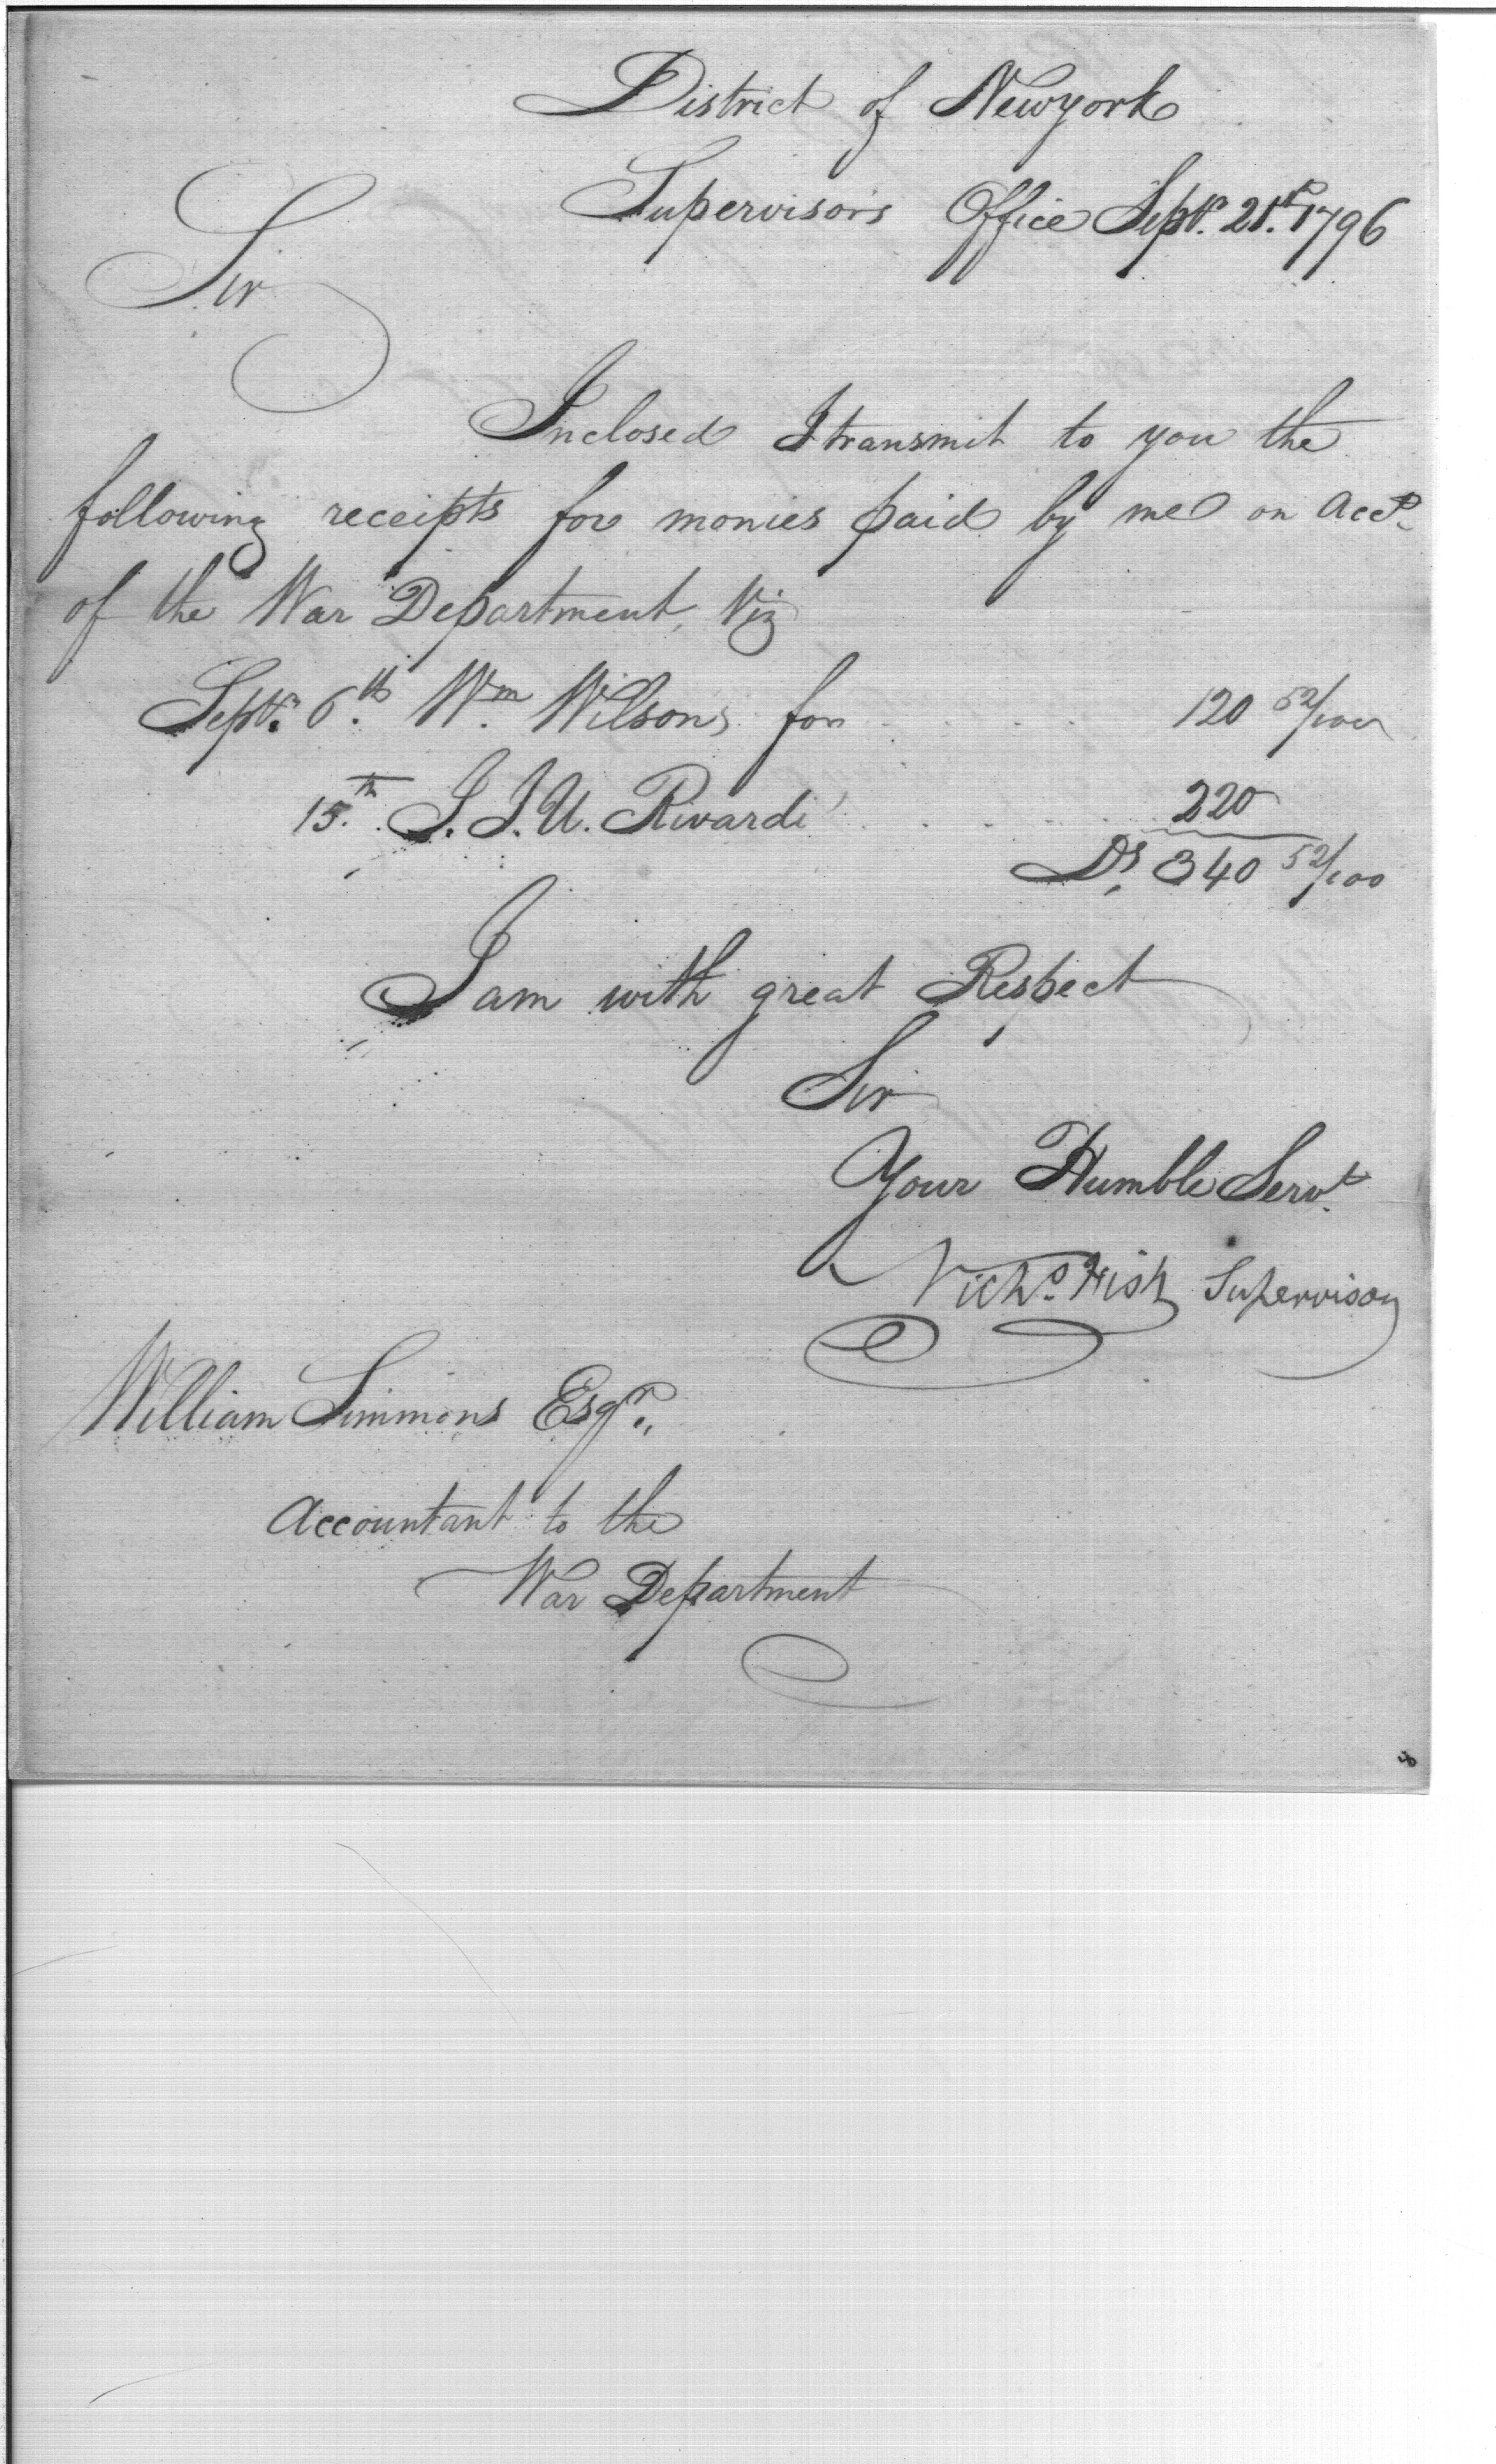 District of Newyork
Supervisors Office Septr. 21st. 1796
Sir
Inclosed I transmit to you the
following receipts for monies paid by me on Acct.
of the War Department, Viz
Septr. 6.th Wm. Wilsons for . . . . 120 52/100
15.th J. J. U. Rivardi . . . . . 220
Ds. 340 52/100
I am with great Respect
Sir
Your Humble Servt.
Nichs. Fish Supervisor
William Simmons Esqr.,
Accountant to the
War Department